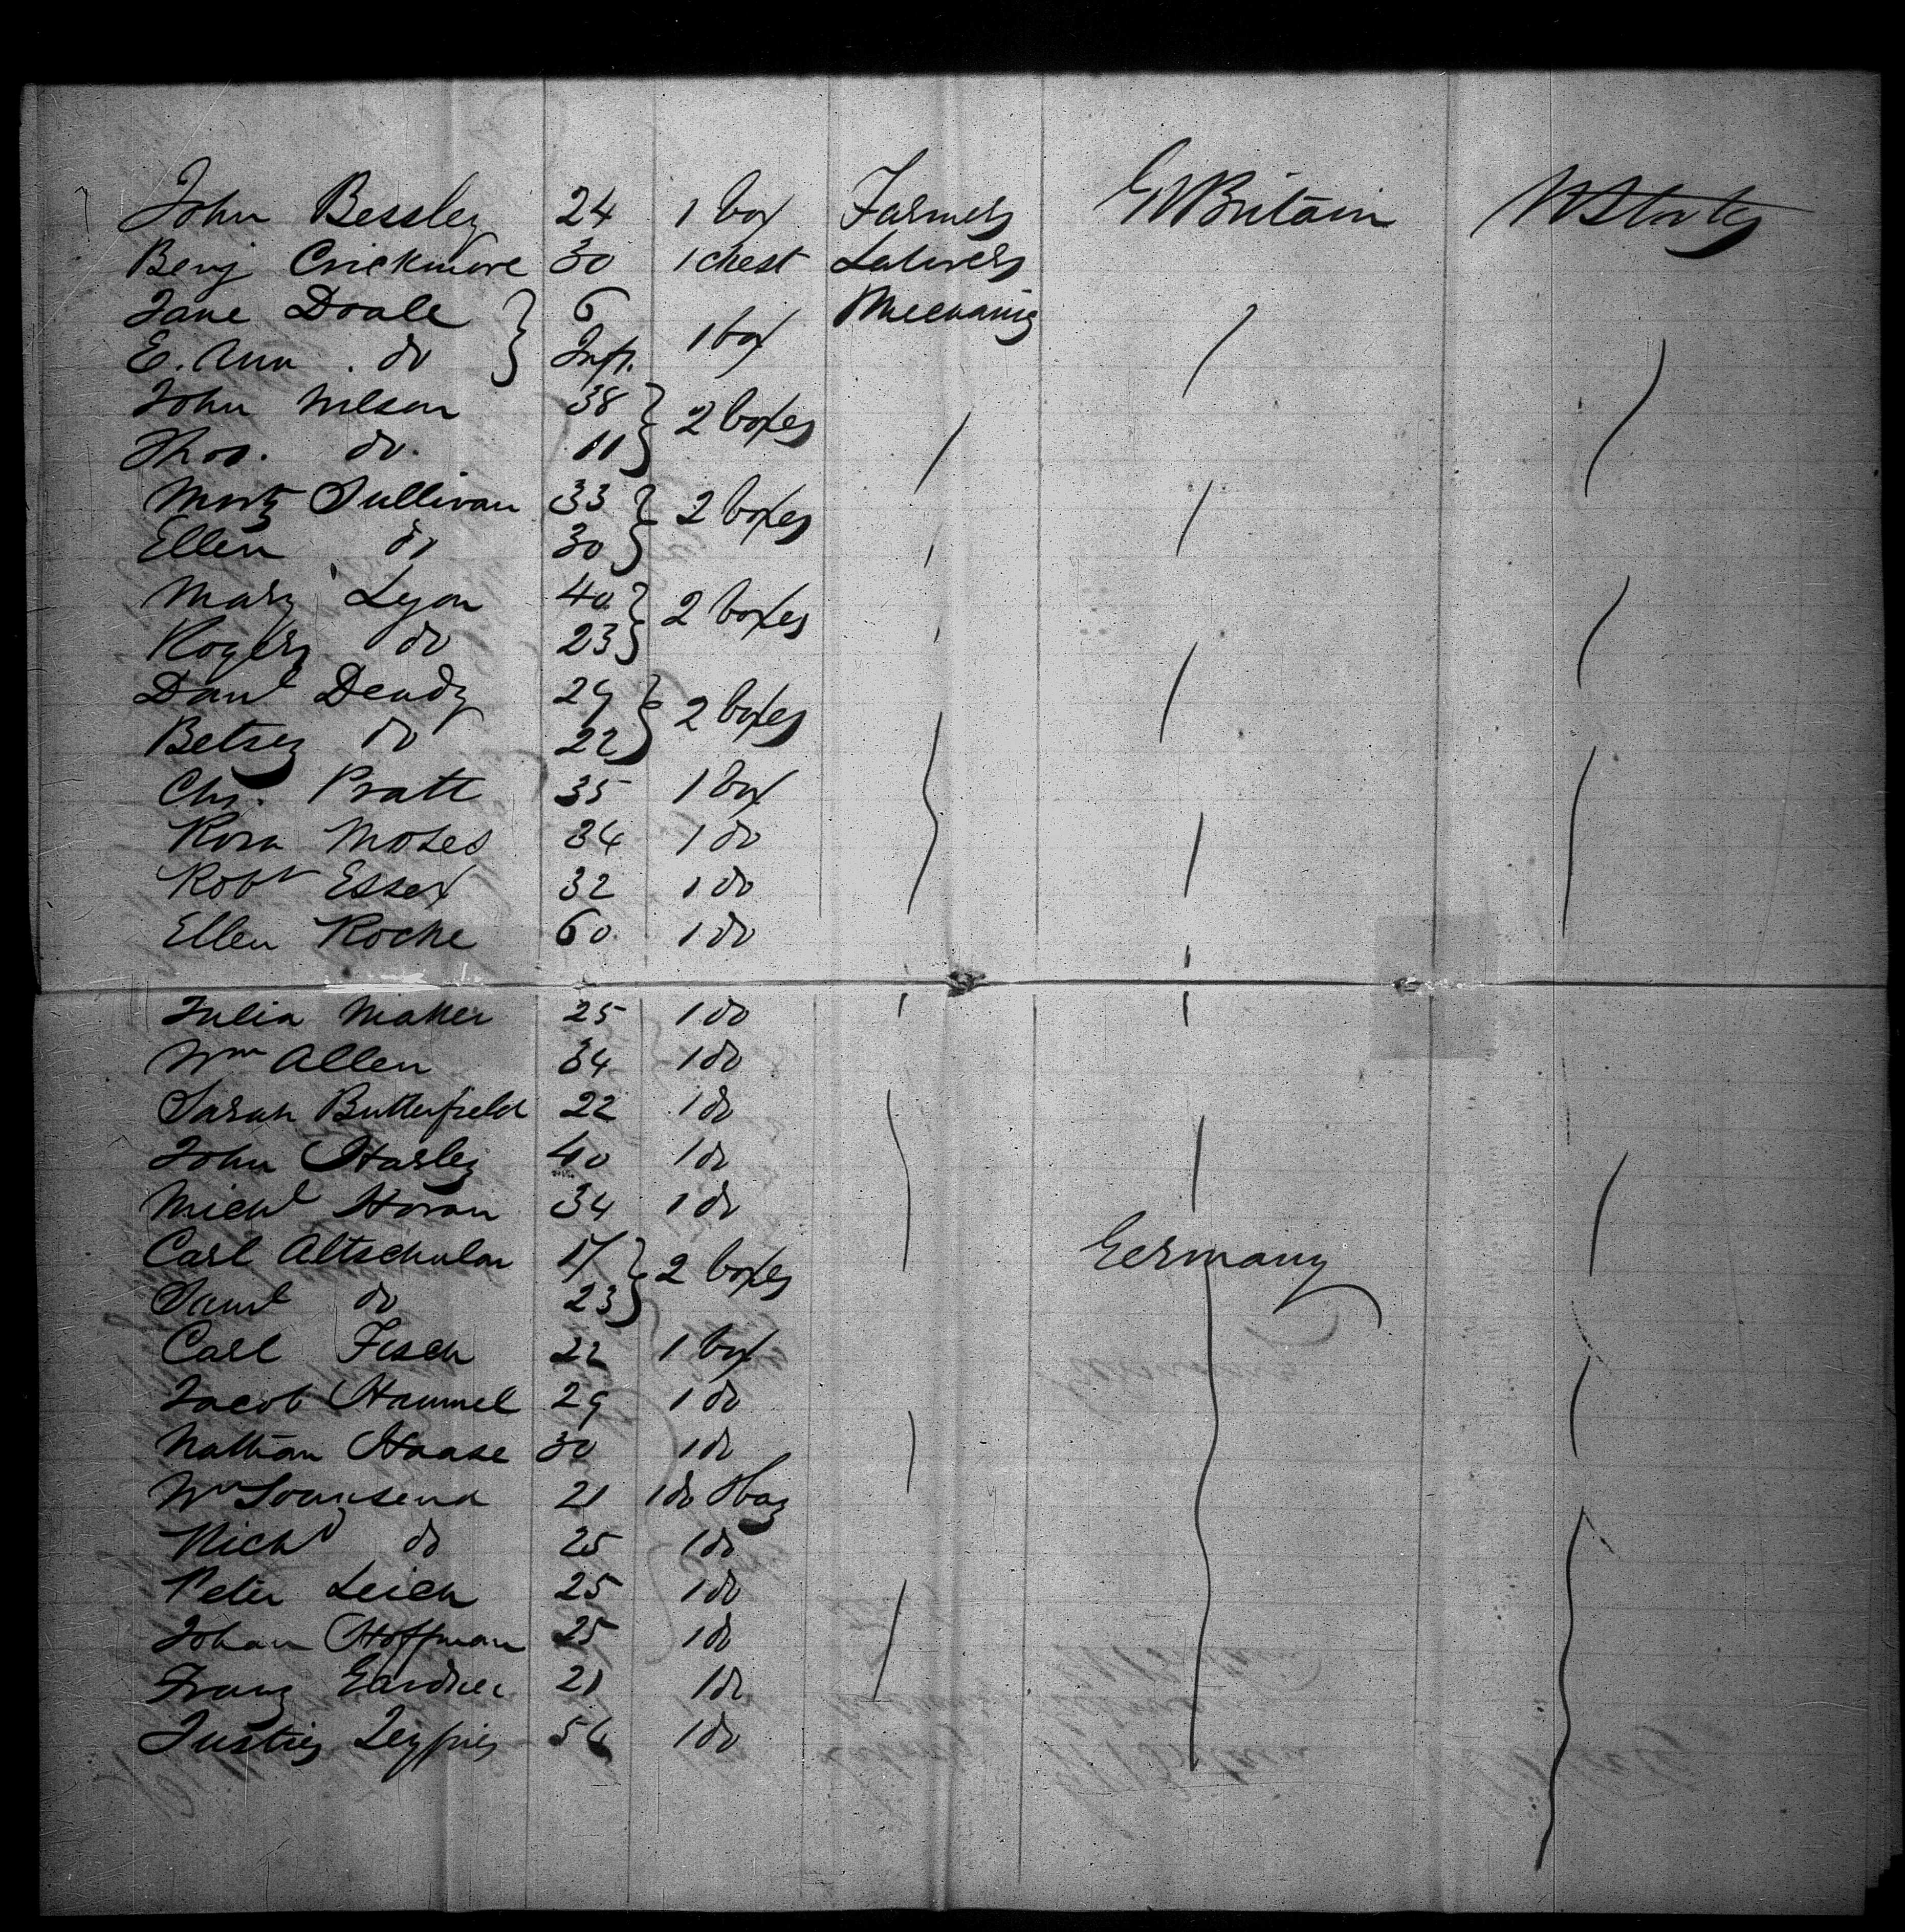 John Bessley 24 1 box Farmers Gt Britain U States
Benj Crickmore 30 1 chest Laborers
Jane Doale 6 1 box Mechanics
E. Ann do Inft.
John Nelson 38 2 boxes
Thos. do. 11
Morty Sullivan 33 2 boxes
Ellen do 30
Mary Lyon 40 2 boxes
Rogers do 23
Danl Deady 29 2 boxes
Betsey do 22
Chs. Pratt 35 1 box
Rosa Moses 34 1 do
Robt Essex 32 1 do
Ellen Roche 60 1 do
Julia Maher 25 1 do
Wm Allen 34 1 do
Sarah Butterfield 22 1 do
John Harley 40 1 do
Michl Horan 34 1 do
Carl Altschular 17 2 boxes Germany
Saml do 23
Carl Fisch 22 1 box
Jacob Hammel 29 1 do
Nathan Haase 30 1 do
Wm Townsend 21 1 do & bag
Richd do 25 1 do
Peter Leich 25 1 do
Johan Hoffman 25 1 do
Franz Gardner 21 1 do
1 do